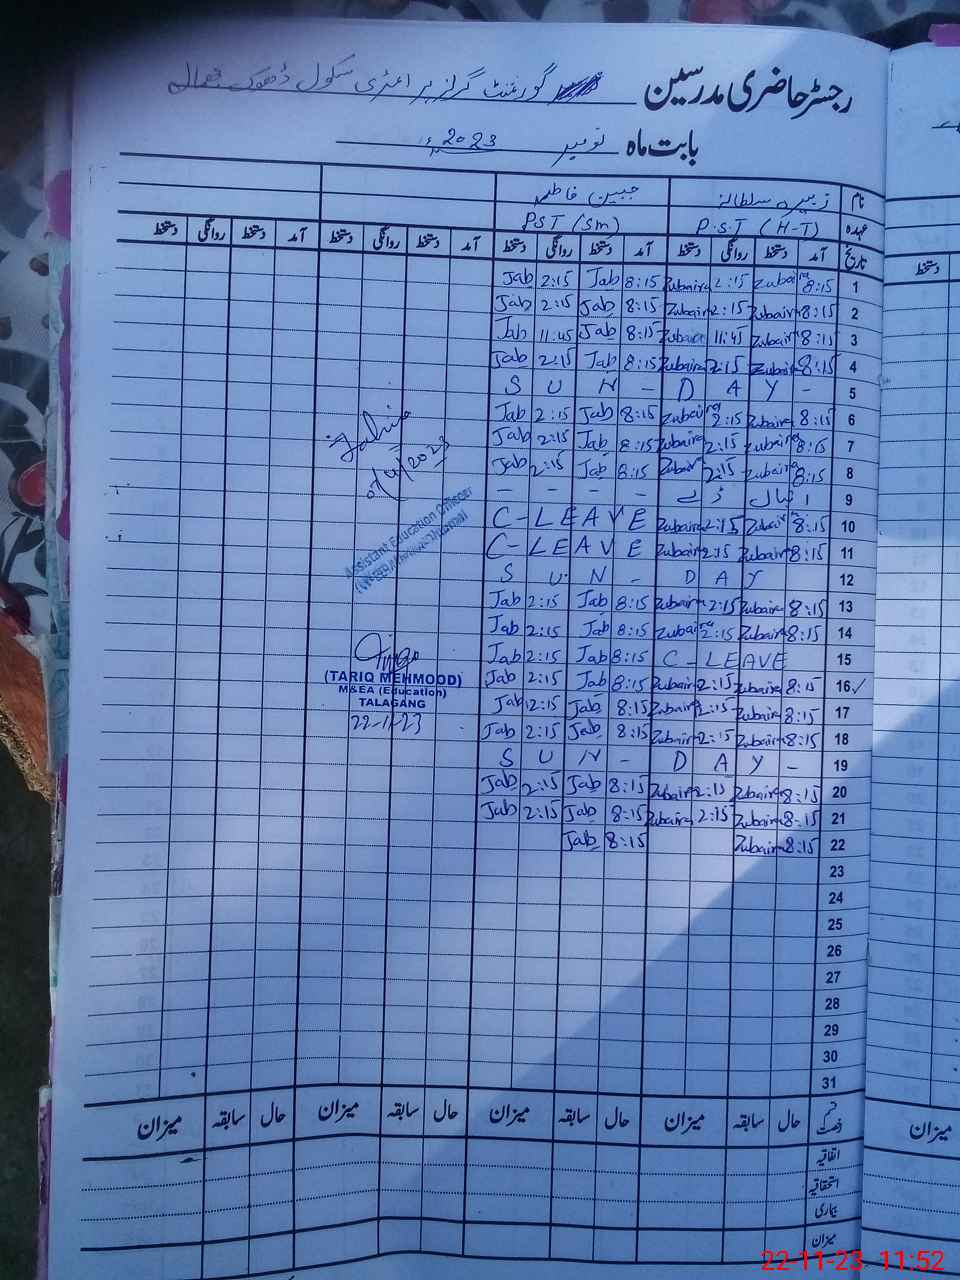 رجسٹر حاضری مدرسین گورنمنٹ گرلز پرائمری سکول ڈھوک جمال
بابت ماہ نومبر 2023ء
نام زبیرہ سلطانہ جبین فاطمہ
عہدہ P.S.T (H-T) PST (Sm)
تاریخ آمد دستخط روانگی دستخط آمد دستخط روانگی دستخط آمد دستخط روانگی دستخط آمد دستخط روانگی دستخط
1 8:15 Zubaira 2:15 Zubaira 8:15 Jab 2:15 Jab
2 8:15 Zubaira 2:15 Zubaira 8:15 Jab 2:15 Jab
3 8:15 Zubaira 11:45 Zubaira 8:15 Jab 11:45 Jab
4 8:15 Zubaira 2:15 Zubaira 8:15 Jab 2:15 Jab
5 S U N - D A Y -
6 8:15 Zubaira 2:15 Zubaira 8:15 Jab 2:15 Jab
7 8:15 Zubaira 2:15 Zubaira 8:15 Jab 2:15 Jab
8 8:15 Zubaira 2:15 Zubaira 8:15 Jab 2:15 Jab
9 اقبال ڈے - - - -
10 8:15 Zubaira 2:15 Zubaira C-LEAVE
11 8:15 Zubaira 2:15 Zubaira C-LEAVE
12 S U N - D A Y
13 8:15 Zubaira 2:15 Zubaira 8:15 Jab 2:15 Jab
14 8:15 Zubaira 2:15 Zubaira 8:15 Jab 2:15 Jab
15 C-LEAVE 8:15 Jab 2:15 Jab
16 ✓ 8:15 Zubaira 2:15 Zubaira 8:15 Jab 2:15 Jab
17 8:15 Zubaira 2:15 Zubaira 8:15 Jab 2:15 Jab
18 8:15 Zubaira 2:15 Zubaira 8:15 Jab 2:15 Jab
19 S U N - D A Y -
20 8:15 Zubaira 2:15 Zubaira 8:15 Jab 2:15 Jab
21 8:15 Zubaira 2:15 Zubaira 8:15 Jab 2:15 Jab
22 8:15 Zubaira 8:15 Jab
23
24
25
26
27
28
29
30
31
Assistant Education Officer
(TARIQ MEHMOOD)
M&EA (Education)
TALAGANG
22-11-23
قسم رخصت حال سابقہ میزان حال سابقہ میزان حال سابقہ میزان حال سابقہ میزان
اتفاقیہ
استحقاقیہ
بیماری
میزان
دستخط
میزان
22-11-23 11:52